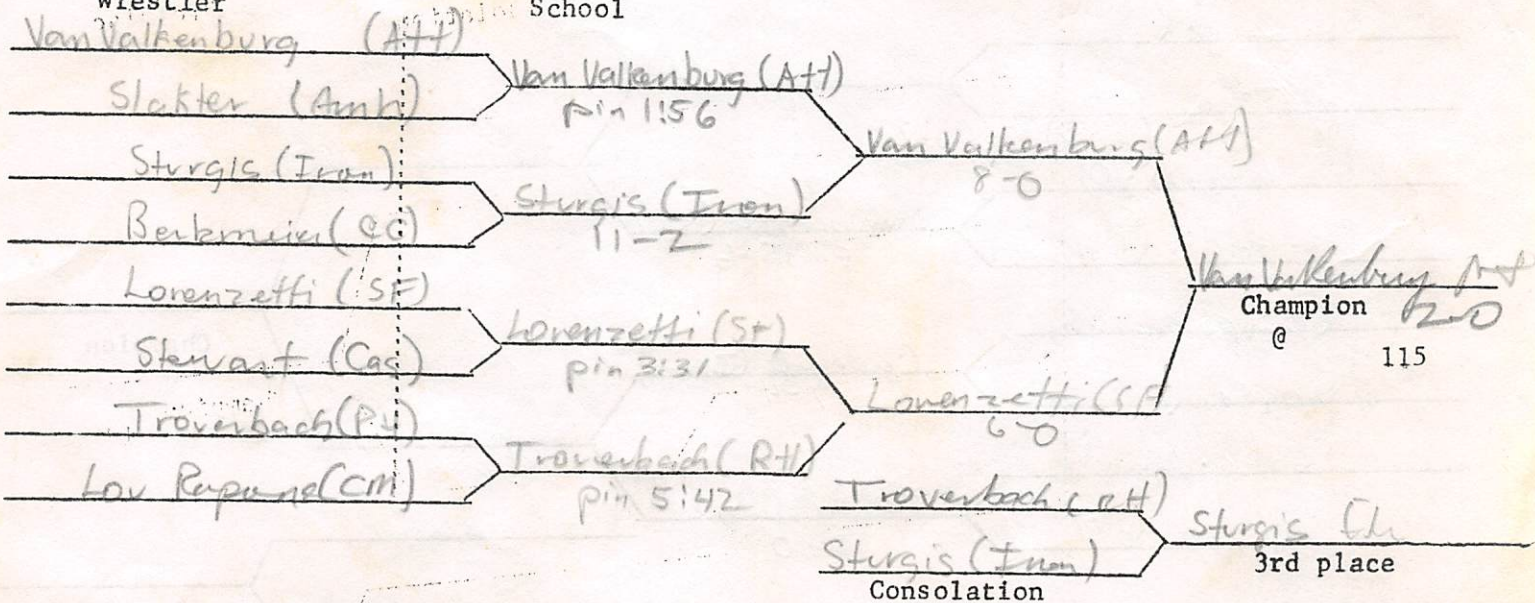 Wrestler School
Van Valkenburg (Att)
Slakter (Amh)
Sturgis (Iron)
Berkmeier (CG)
Lorenzetti (SF)
Stewart (Cas)
Troverbach (P4)
Lou Rapone (CM)
Van Valkenburg (Att)
pin 1:56
Sturgis (Iron)
11-2
Lorenzetti (SF)
pin 3:31
Troverbach (RH)
pin 5:42
Van Valkenburg (Att)
8-0
Lorenzetti (SF
6-0
Troverbach (RH)
Sturgis (Iron)
Consolation
Van Valkenburg Att
2-0
Champion
@
115
Sturgis
3rd place